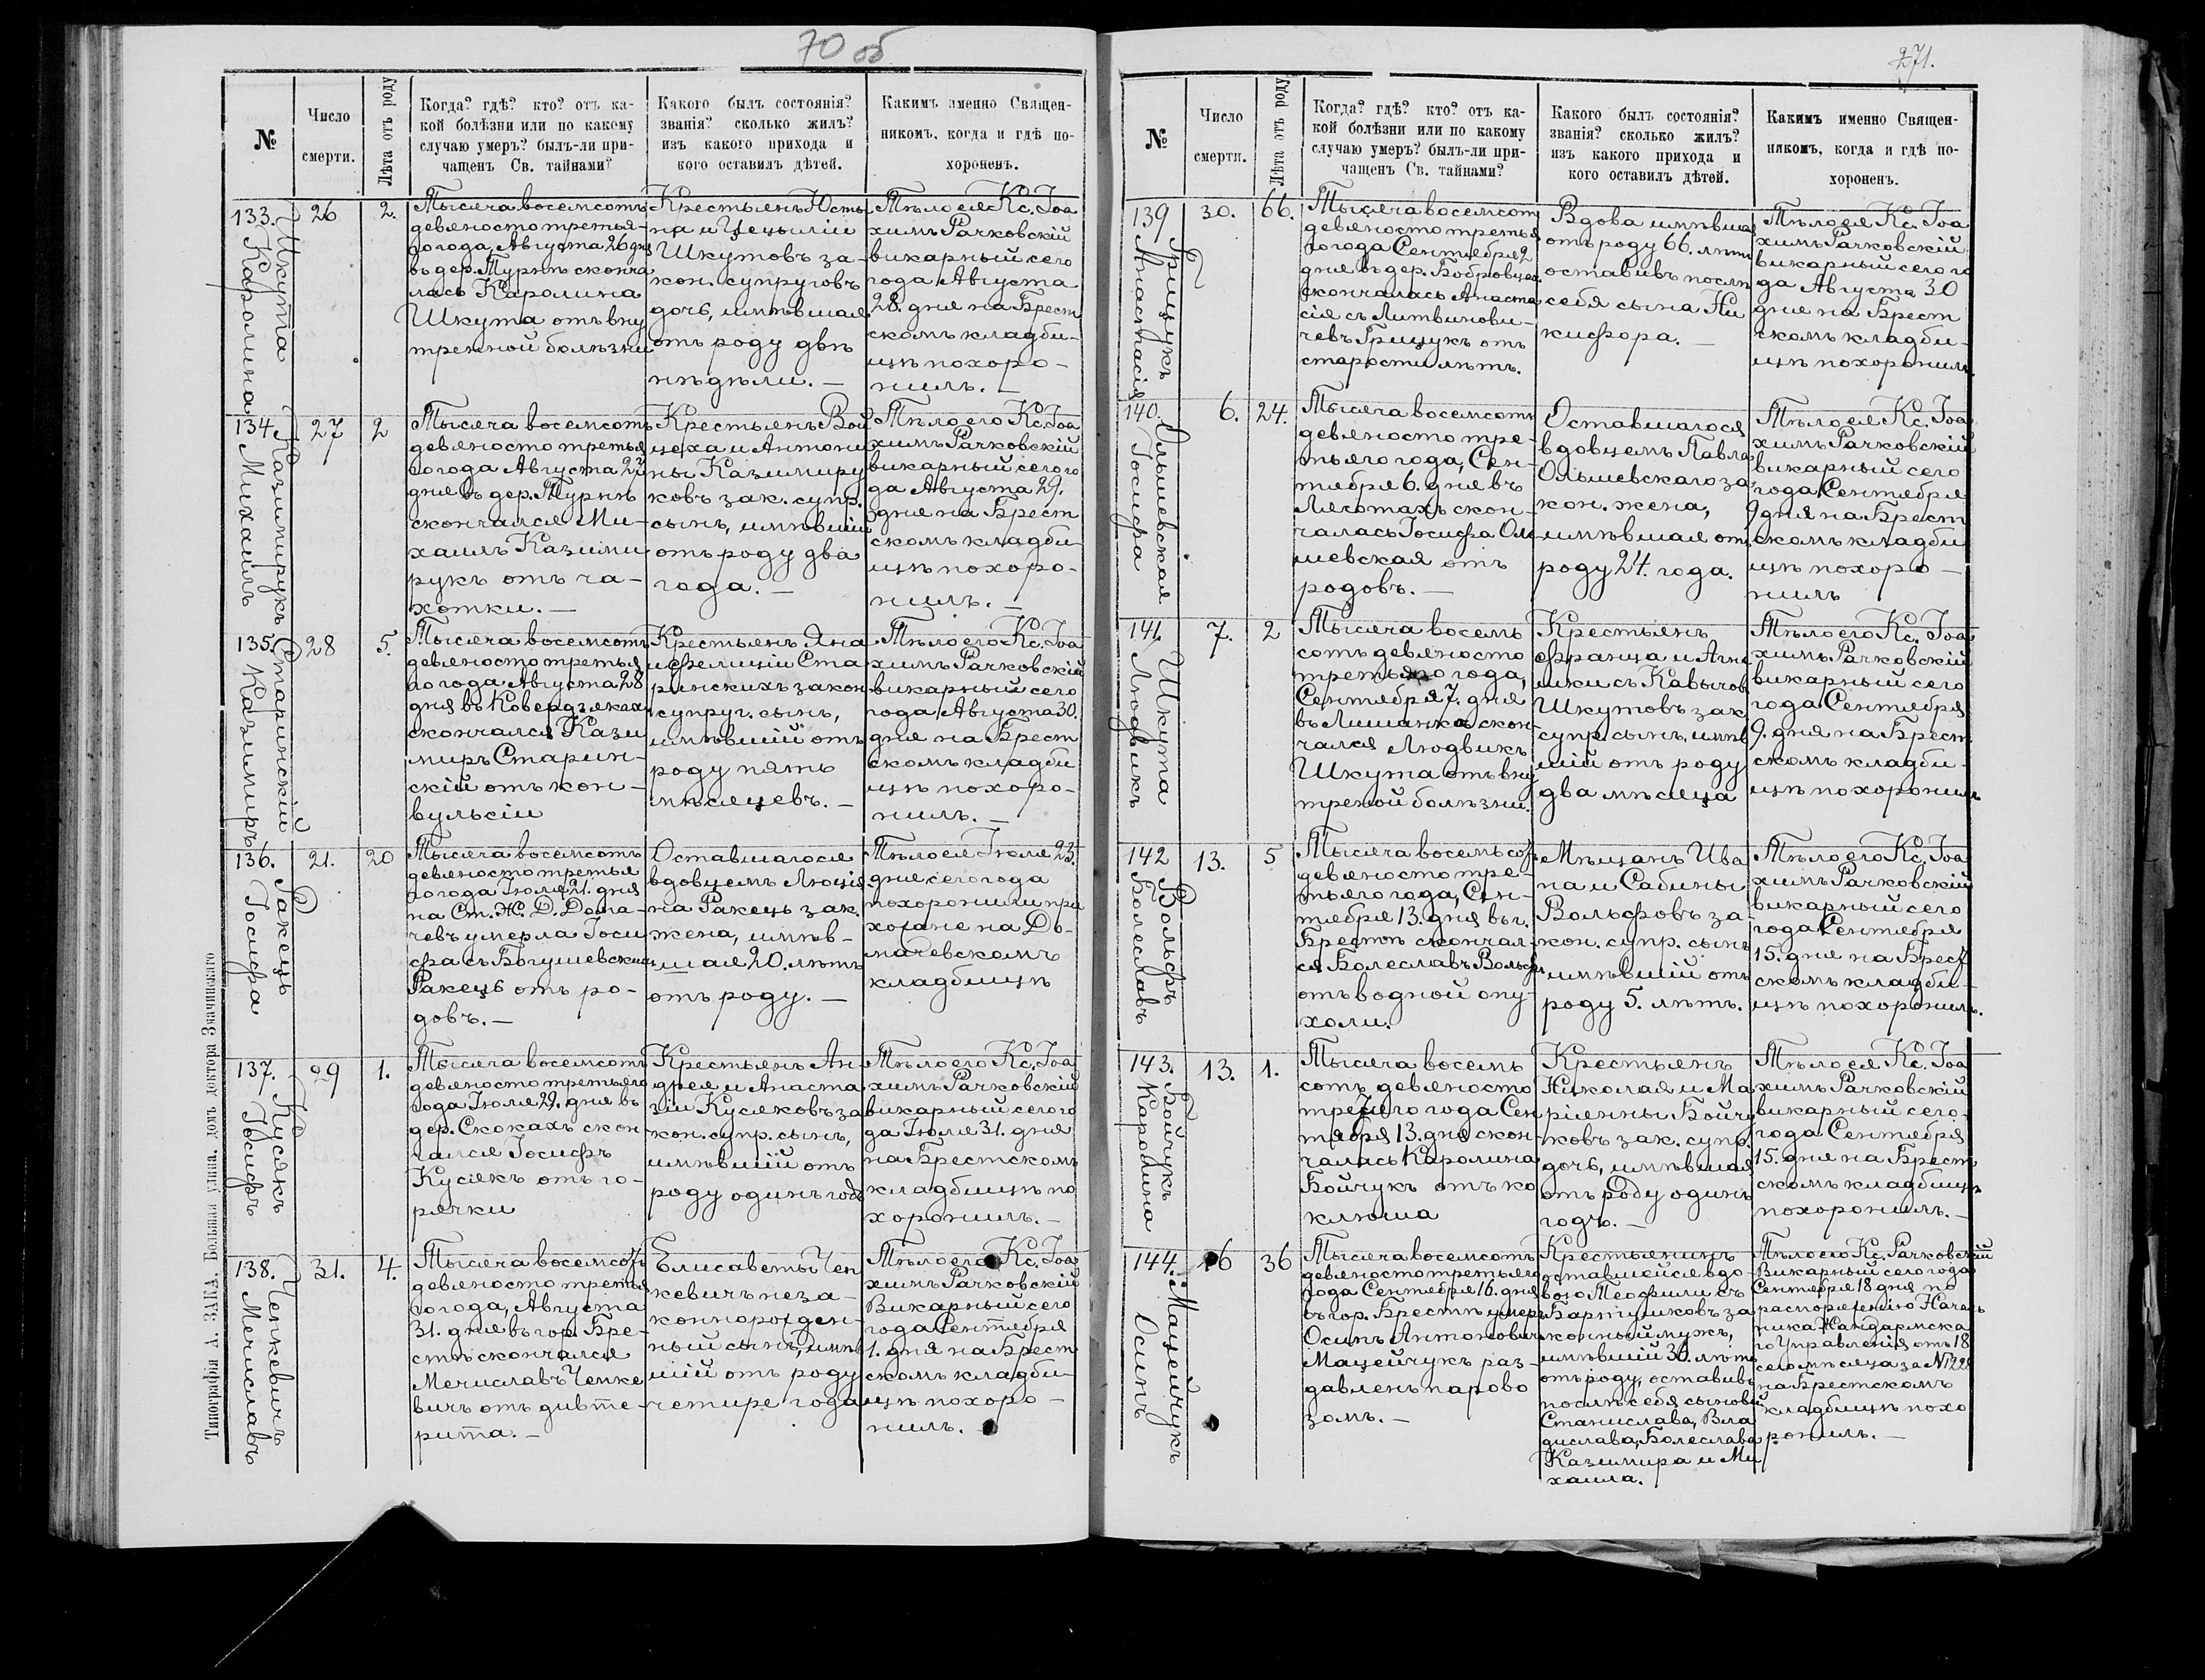 70 об
№
Число
смерти.
Лѣта отъ роду
Когда? гдѣ? кто? отъ ка-
кой болѣзни или по какому
случаю умеръ? былъ-ли при-
чащенъ Св. тайнами?
Какого былъ состоянія?
званія? сколько жилъ?
изъ какого прихода и
кого оставилъ дѣтей.
Какимъ именно Священ-
никомъ, когда и гдѣ по-
хороненъ.
133.
Шкута
Каролина
26
2.
Тысяча восемсотъ
девяносто третья-
го года, Августа 26 дня
въ дер. Турнѣ сконча
лась Каролина
Шкута отъ вну
тренной болѣзни
Крестьянъ Юсты
на и Цецыліи
Шкутовъ за-
кон. супруговъ
дочь, имѣвшая
отъ роду двѣ
нѣдѣли. —
Тѣло ея Кс. Іоа
химъ Рачковскій
викарный сего
года Августа
28. дня на Брест
скомъ кладби-
щѣ похоро-
нилъ. —
134.
Казимирукъ
Михаилъ
27
2
Тысяча восемсотъ
девяносто третья
го года Августа 27
дня въ дер. Турнѣ
скончался Ми-
хаилъ Казими
рукъ отъ ча-
хотки. —
Крестьянъ Вой
цеха и Антони
ны Казимиру
ковъ зак. супр.
сынъ, имѣвшій
отъ роду два
года. —
Тѣло его Кс. Іоа
химъ Рачковскій
викарный сего го
да Августа 29.
дня на Брест
скомъ кладби
щѣ похоро-
нилъ. —
135.
Старинскій
Казимиръ
28
5.
Тысяча восемсотъ
девяносто третья
го года Августа 28
дня въ Ковердзяках
скончался Кази
миръ Старин-
скій отъ кон-
вульсіи
Крестьянъ Яна
и Фелиціи Ста
ринскихъ закон
супруг. сынъ,
имѣвшій отъ
роду пять
мѣсяцевъ. —
Тѣло его Кс. Іоа
химъ Рачковскій
викарный сего
года Августа 30.
дня на Брест
скомъ кладби
щѣ похоро-
нилъ. —
136.
Ракецъ
Іосифа
21.
20
Тысяча восемсотъ
девяносто третья
го года Іюля 21. дня
на Ст. Ж. Д. Дома-
чевъ умерла Іоси
фа съ Богушевскихъ
Ракець отъ ро-
довъ. —
Оставшагося
вдовцемъ Люція
на Ракець зак.
жена, имѣв-
шая 20. лѣтъ
отъ роду. —
Тѣло ея Іюля 23.
дня сего года
похоронили при
хожане на До-
мачевскомъ
кладбищѣ
137.
Кусякъ
Іосифъ
29
1.
Тысяча восемсотъ
девяносто третьяго
года Іюля 29. дня въ
дер. Скокахъ скон
чался Іосифъ
Кусякъ отъ го-
рячки
Крестьянъ Ан-
дрея и Анаста
зіи Кусяковъ за
кон. супр. сынъ,
имѣвшій отъ
роду одинъ годъ
Тѣло его Кс. Іоа
химъ Рачковскій
викарный сего го
да Іюля 31. дня
на Брестскомъ
кладбищѣ по
хоронилъ. —
138.
Чепкевичъ
Мечиславъ
31.
4.
Тысяча восемсотъ
девяносто третья
го года, Августа
31. дня въ гор. Бре-
стѣ скончался
Мечиславъ Чепке
вичъ отъ дифте-
рита. —
Елисаветы Чеп
кевичъ неза-
коннорожден-
ный сынъ, имѣв
шій отъ роду
четире года
Тѣло его Кс. Іоа
химъ Рачковскій
Викарный сего
года Сентября
1. дня на Брест
скомъ кладби-
щѣ похоро-
нилъ.
Типографія А. ЗАКА, Большая улица, домъ доктора Значинскаго
271.
№
Число
смерти.
Лѣта отъ роду
Когда? гдѣ? кто? отъ ка-
кой болѣзни или по какому
случаю умеръ? былъ-ли при-
чащенъ Св. тайнами?
Какого былъ состоянія?
званія? сколько жилъ?
изъ какого прихода и
кого оставилъ дѣтей.
Какимъ именно Священ-
никомъ, когда и гдѣ по-
хороненъ.
139
Грицукъ
Анастасія
30.
66.
Тысяча восемсотъ
девяносто третья
го года Сентября 2
дня въ дер. Бобровцах
скончалась Анаста
сія съ Литвинови-
чевъ Грицукъ отъ
старости лѣтъ.
Вдова имѣвшая
отъ роду 66. лѣтъ
оставивъ послѣ
себя сына Ни
кифора. —
Тѣло ея Кс. Іоа
химъ Рачковскій
викарный сего го
да Августа 30
дня на Брест
скомъ кладби-
щѣ похоронилъ.
140.
Ольшевская
Іосифа
6.
24.
Тысяча восемсотъ
девяносто тре-
тьяго года, Сен-
тября 6. дня въ
Лютахъ скон-
чалась Іосифа Оль
шевская отъ
родовъ. —
Оставшагося
вдовцемъ Павла
Ольшевскаго за
кон. жена,
имѣвшая отъ
роду 24. года.
Тѣло ея Кс. Іоа
химъ Рачковскій
викарный сего
года Сентября
9 дня на Брест
скомъ кладби
щѣ похоро-
нилъ
141.
Шкута
Людвикъ
7.
2
Тысяча восемь
сотъ девяносто
третьяго года,
Сентября 7. дня
въ Лишанкѣ скон
чался Людвикъ
Шкута отъ вну
треной болѣзни.
Крестьянъ
Франца и Агне
шки съ Кавычов
Шкутовъ зак
супр. сынъ, имѣв
шій отъ роду
два мѣсяца
Тѣло его Кс. Іоа
химъ Рачковскій
викарный сего
года Сентября
9. дня на Брест
скомъ кладби-
щѣ похоронилъ
142
Вольфъ
Болеславъ
13.
5
Тысяча восемьсотъ
девяносто тре-
тьяго года, Сен-
тября 13. дня въ г.
Брестѣ скончал-
ся Болеславъ Вольфъ
отъ водной опу-
холи.
Мѣщанъ Ива
на и Сабины
Вольфовъ за-
кон. супр. сынъ
имѣвшій отъ
роду 5. лѣтъ.
Тѣло его Кс. Іоа
химъ Рачковскій
викарный сего
года Сентября
15. дня на Брест
скомъ кладби-
щѣ похоронилъ.
143.
Бойчукъ
Каролина
13.
1.
Тысяча восемь
сотъ девяносто
третяго года Сен
тября 13. дня скон-
чалась Каролина
Бойчукъ отъ ко
клюша
Крестьянъ
Николая и Ма
ріянны Бойчу
ковъ зак. супр.
дочь, имѣвшая
отъ роду одинъ
годъ. —
Тѣло ея Кс. Іоа
химъ Рачковскій
викарный сего
года Сентября
15. дня на Брест
скомъ кладбищѣ
похоронилъ. —
144.
Мацейчукъ
Осипъ
16
36
Тысяча восемсотъ
девяносто третьяго
года Сентября 16. дня
въ гор. Брестѣ умеръ
Осипъ Антоновичъ
Мацейчукъ раз-
давленъ парово
зомъ. —
Крестьянинъ
оставшейся вдо-
вою Теофили съ
Бартушковъ за
конный мужъ,
имѣвшій 36. лѣтъ
отъ роду, оставивъ
послѣ себя сыновей
Станислава, Вла
дислава, Болеслава
Казимира и Ми
хаила.
Тѣло его Кс. Рачковскій
Викарный сего года
Сентября 18 дня по
распоряженію Началь
ника Жандармска
го Управленія отъ 18
сего мѣсяца за №1228
на Брестскомъ
кладбищѣ похо
ронилъ. —